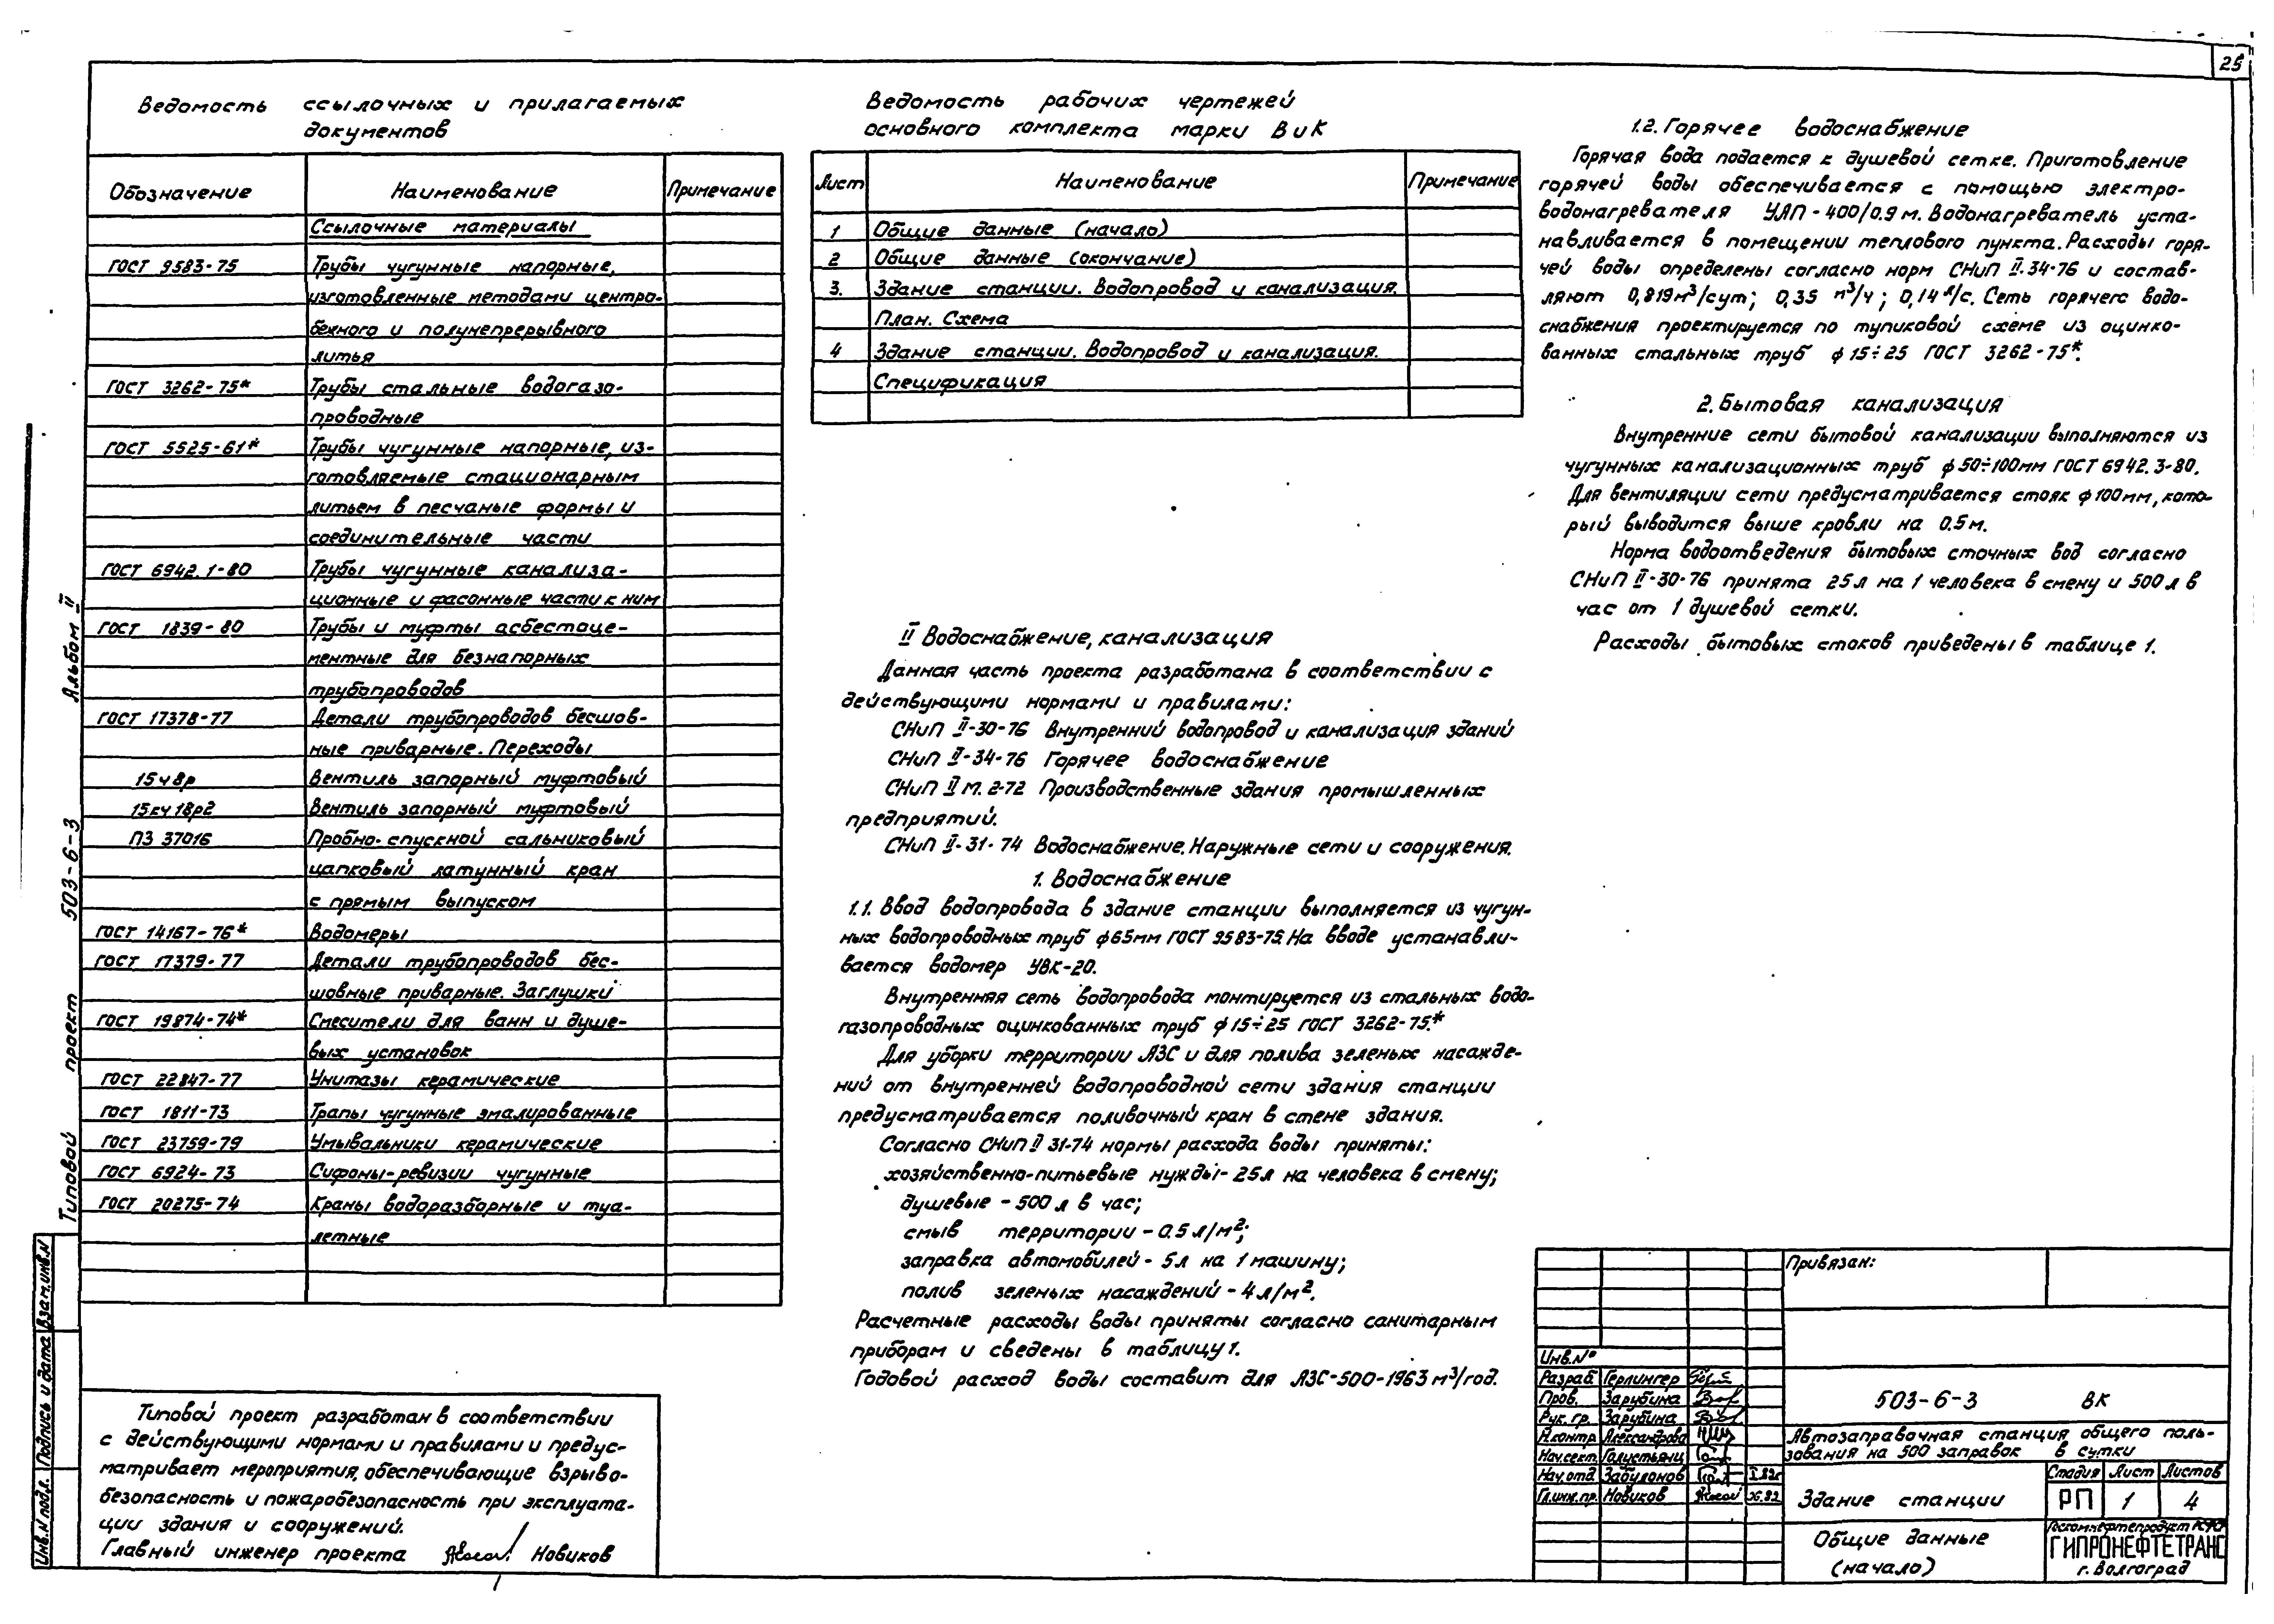 25
Ведомость ссылочных и прилагаемых
документов
Обозначение Наименование Примечание
Ссылочные материалы
ГОСТ 9583-75 Трубы чугунные напорные,
изготовленные методами центро-
бежного и полунепрерывного
литья
ГОСТ 3262-75* Трубы стальные водогазо-
проводные
ГОСТ 5525-61* Трубы чугунные напорные, из-
готовляемые стационарным
литьем в песчаные формы и
соединительные части
ГОСТ 6942.1-80 Трубы чугунные канализа-
ционные и фасонные части к ним
ГОСТ 1839-80 Трубы и муфты асбестоце-
ментные для безнапорных
трубопроводов
ГОСТ 17378-77 Детали трубопроводов бесшов-
ные приварные. Переходы
15ч8р Вентиль запорный муфтовый
15кч18р2 Вентиль запорный муфтовый
ПЗ 37016 Пробно-спускной сальниковый
цапковый латунный кран
с прямым выпуском
ГОСТ 14167-76* Водомеры
ГОСТ 17379-77 Детали трубопроводов бес-
шовные приварные. Заглушки
ГОСТ 19874-74* Смесители для ванн и душе-
вых установок
ГОСТ 22847-77 Унитазы керамические
ГОСТ 1811-73 Трапы чугунные эмалированные
ГОСТ 23759-79 Умывальники керамические
ГОСТ 6924-73 Сифоны-ревизии чугунные
ГОСТ 20275-74 Краны водоразборные и туа-
летные
Типовой проект разработан в соответствии
с действующими нормами и правилами и предус-
матривает мероприятия, обеспечивающие взрыво-
безопасность и пожаробезопасность при эксплуата-
ции здания и сооружений.
Главный инженер проекта Новиков
Типовой проект 503-6-3 Альбом II
Инв.N подл. Подпись и дата Взам.инв.N
Ведомость рабочих чертежей
основного комплекта марки ВиК
Лист Наименование Примечание
1 Общие данные (начало)
2 Общие данные (окончание)
3. Здание станции. Водопровод и канализация.
План. Схема
4 Здание станции. Водопровод и канализация.
Спецификация
II Водоснабжение, канализация
Данная часть проекта разработана в соответствии с
действующими нормами и правилами:
СНиП II-30-76 Внутренний водопровод и канализация зданий
СНиП II-34-76 Горячее водоснабжение
СНиП II М. 2-72 Производственные здания промышленных
предприятий.
СНиП II-31-74 Водоснабжение. Наружные сети и сооружения.
1. Водоснабжение
1.1. Ввод водопровода в здание станции выполняется из чугун-
ных водопроводных труб ф65мм ГОСТ 9583-75. На вводе устанавли-
вается водомер УВК-20.
Внутренняя сеть водопровода монтируется из стальных водо-
газопроводных оцинкованных труб ф15÷25 ГОСТ 3262-75.*
Для уборки территории АЗС и для полива зеленых насажде-
ний от внутренней водопроводной сети здания станции
предусматривается поливочный кран в стене здания.
Согласно СНиП II 31-74 нормы расхода воды приняты:
хозяйственно-питьевые нужды- 25л на человека в смену;
душевые - 500 л в час;
смыв территории - 0.5 л/м²;
заправка автомобилей - 5л на 1 машину;
полив зеленых насаждений - 4 л/м².
Расчетные расходы воды приняты согласно санитарным
приборам и сведены в таблицу 1.
Годовой расход воды составит для АЗС-500-1963 м³/год.
1.2. Горячее водоснабжение
Горячая вода подается к душевой сетке. Приготовление
горячей воды обеспечивается с помощью электро-
водонагревателя УАП-400/0.9 м. Водонагреватель уста-
навливается в помещении теплового пункта. Расходы горя-
чей воды определены согласно норм СНиП II.34-76 и состав-
ляют 0,819м³/сут; 0,35 м³/ч; 0,14 л/с. Сеть горячего водо-
снабжения проектируется по тупиковой схеме из оцинко-
ванных стальных труб ф15÷25 ГОСТ 3262-75*.
2. Бытовая канализация
Внутренние сети бытовой канализации выполняются из
чугунных канализационных труб ф50÷100мм ГОСТ 6942.3-80.
Для вентиляции сети предусматривается стояк ф100мм, кото-
рый выводится выше кровли на 0.5 м.
Норма водоотведения бытовых сточных вод согласно
СНиП II-30-76 принята 25л на 1 человека в смену и 500 л в
час от 1 душевой сетки.
Расходы бытовых стоков приведены в таблице 1.
Привязан:
Инв.N°
Разраб. Герлингер
Пров. Зарубина
Рук. гр. Зарубина
Н.контр. Александрова
Нач.сект. Галустьянц
Нач.отд. Забулонов
Гл.инж.пр. Новиков
503-6-3 ВК
Автозаправочная станция общего поль-
зования на 500 заправок в сутки
Здание станции
Стадия Лист Листов
РП 1 4
Общие данные
(начало)
Госкомнефтепродукт
ГИПРОНЕФТЕТРАНС
г. Волгоград